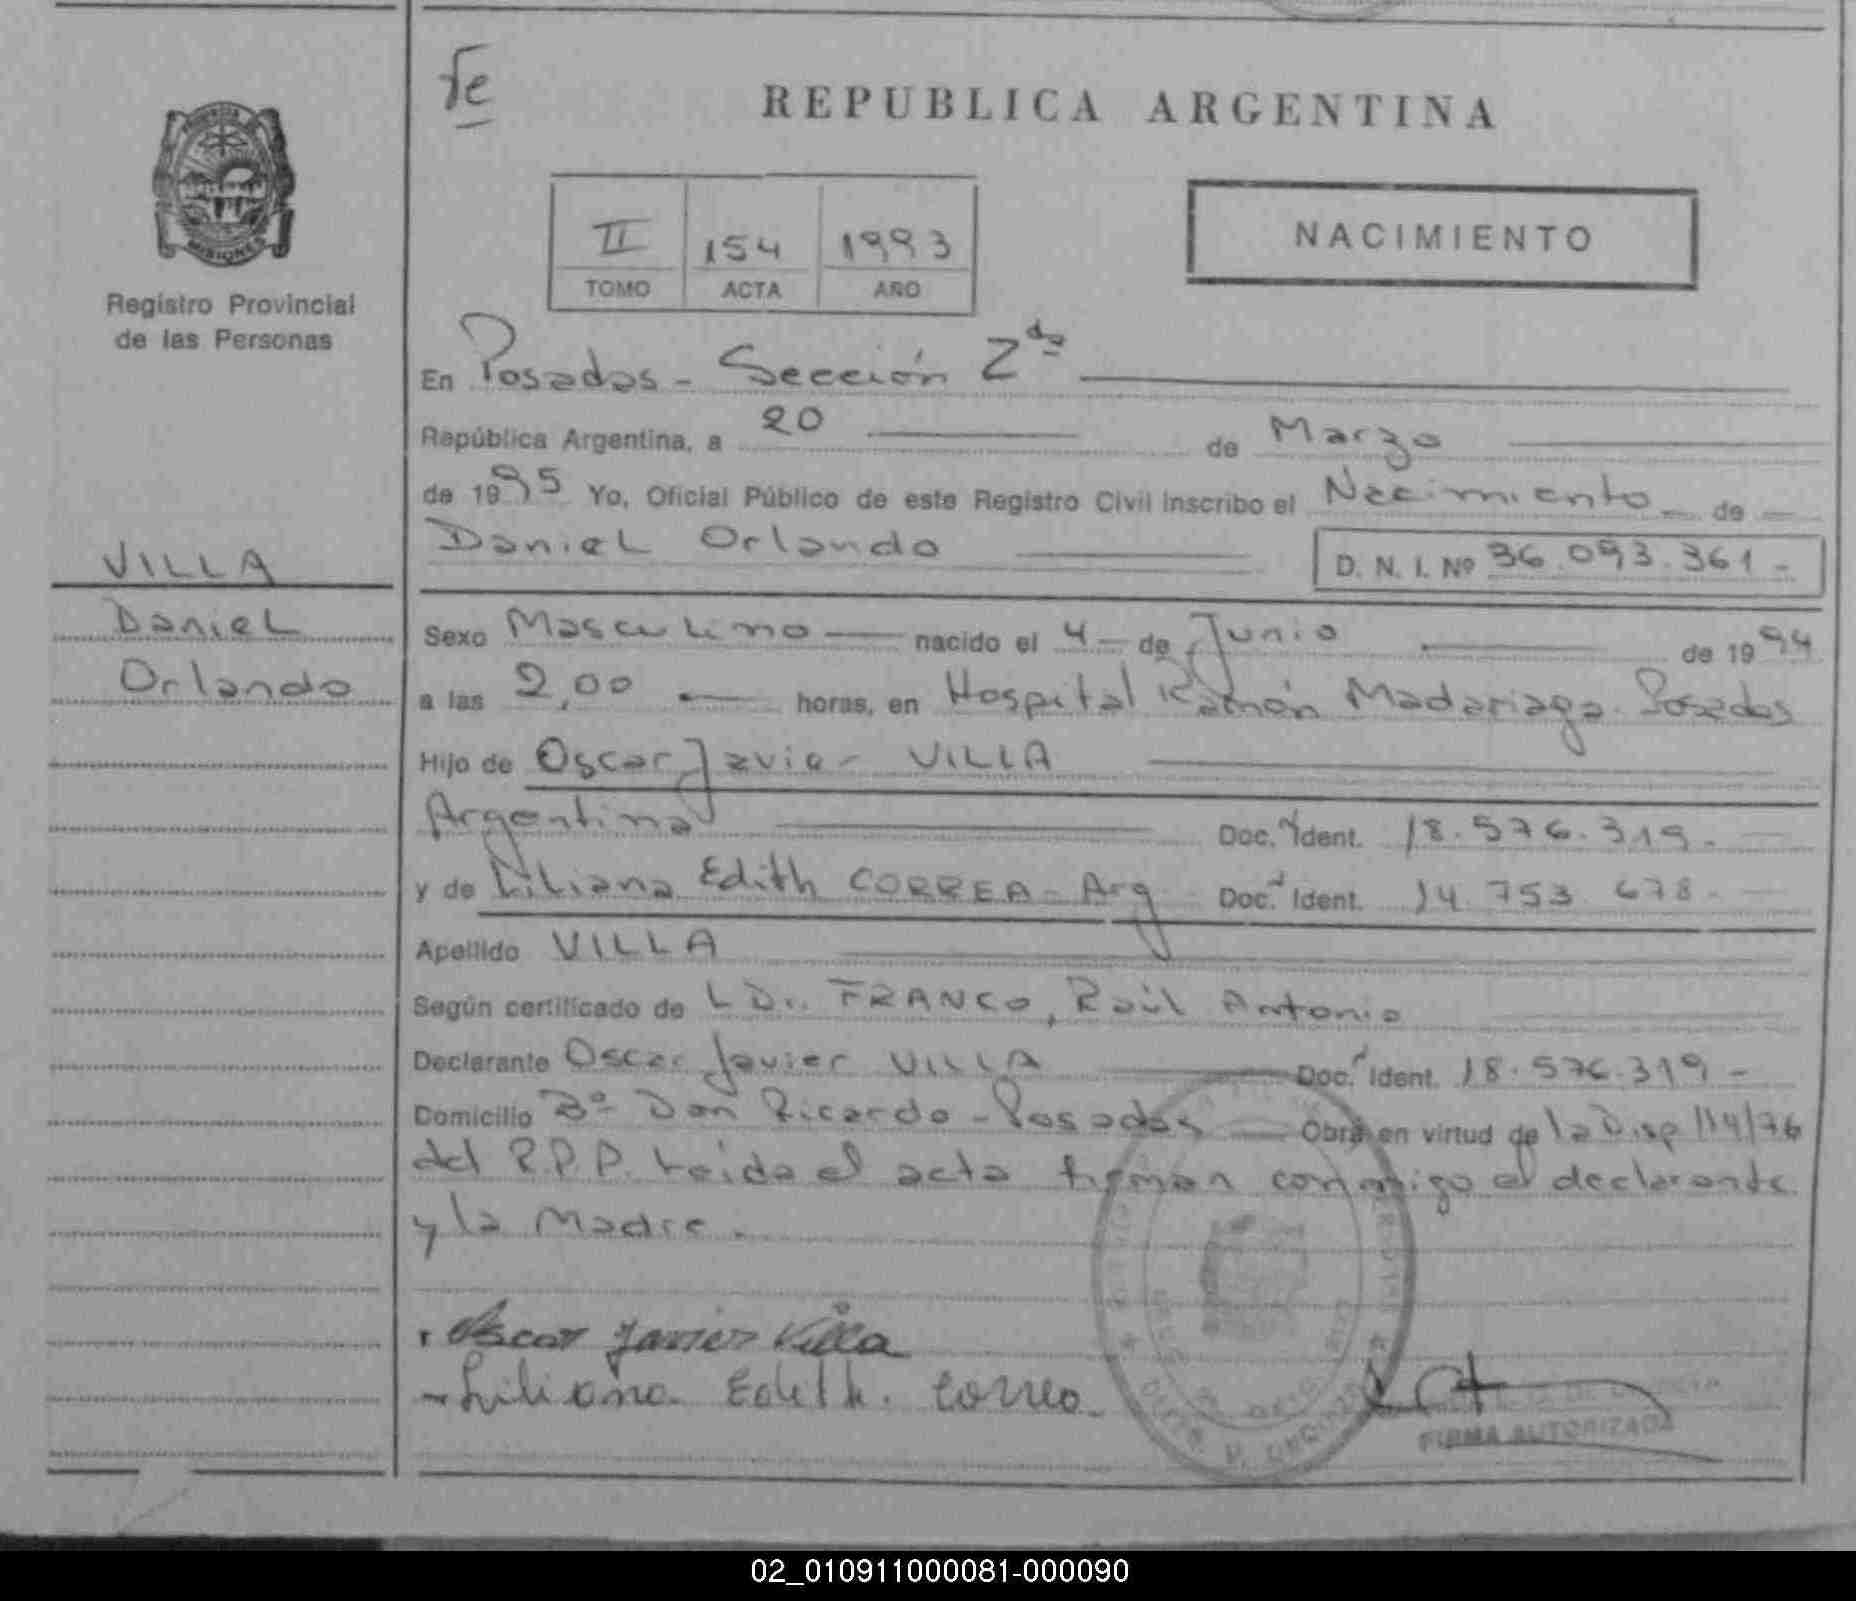 Te
REPUBLICA ARGENTINA
MISIONES
Registro Provincial
de las Personas
II 154 1993
TOMO ACTA AÑO
NACIMIENTO
En Posadas - Sección 2da
República Argentina, a 20 de Marzo
de 1995 Yo, Oficial Público de este Registro Civil inscribo el Nacimiento de
Daniel Orlando D. N. I. Nº 36.093.361 -
VILLA
Daniel
Orlando
Sexo Masculino nacido el 4 de Junio de 1994
a las 2,00 horas, en Hospital Ramón Madariaga. Posadas
Hijo de Oscar Javier VILLA
Argentina Doc. Ident. 18.576.319.
y de Liliana Edith CORREA - Arg Doc. Ident. 14.753.678 -
Apellido VILLA
Según certificado de L Dr. FRANCO, Raúl Antonio
Declarante Oscar Javier VILLA Doc. Ident. 18.576.319 -
Domicilio Bº Don Ricardo - Posadas Obra en virtud de la Disp 114/76
del R.P.P. Leida el acta firman conmigo el declarante
y la Madre.
Oscar Javier Villa
Liliana Edith Correa
FIRMA AUTORIZADA
02_010911000081-000090